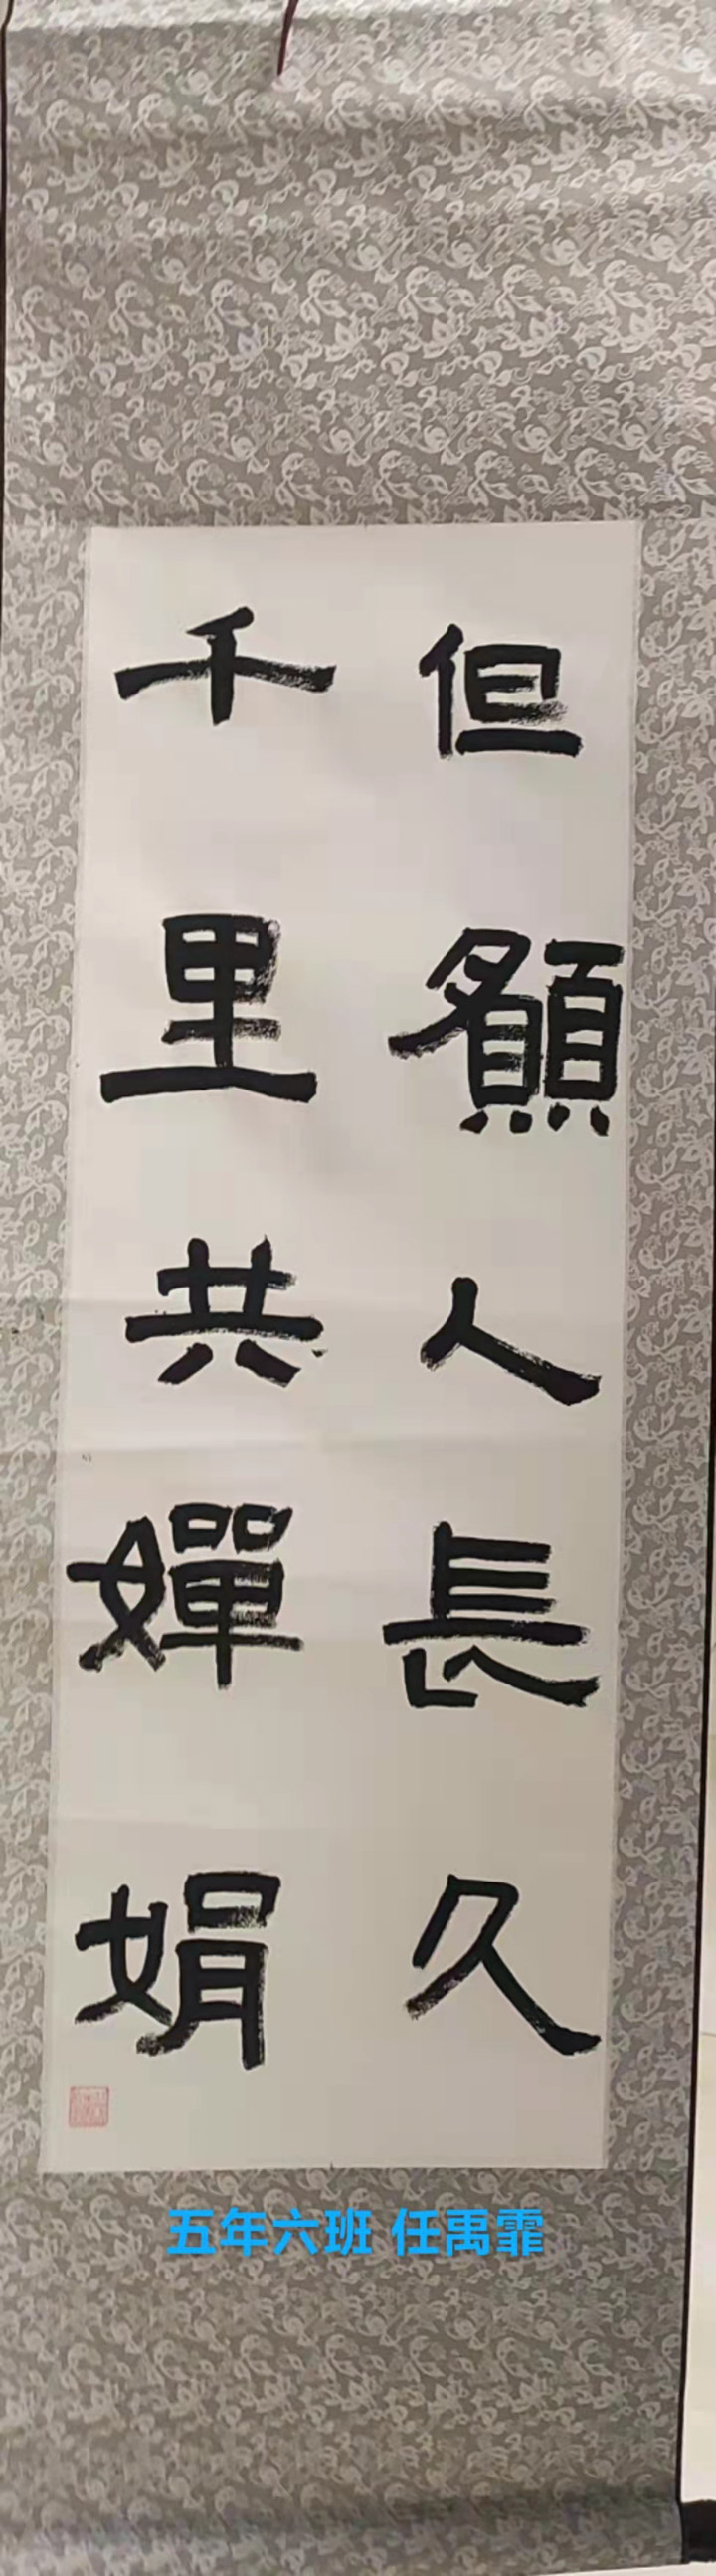 但願人長久
千里共嬋娟
五年六班 任禹霏